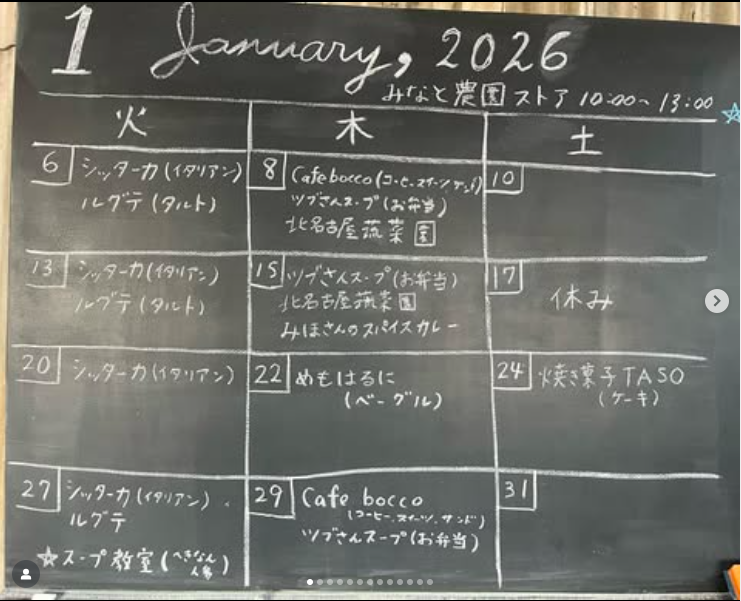 1 January, 2026
みなと農園ストア 10:00~13:00
火
木
土
6 シッターカ(イタリアン)
ルグテ(タルト)
8 Cafe bocco(コーヒー、スイーツ、サンド)
ツブさんスープ(お弁当)
北名古屋蔬菜園
10
13 シッターカ(イタリアン)
ルグテ(タルト)
15 ツブさんスープ(お弁当)
北名古屋蔬菜園
みほさんのスパイスカレー
17
休み
20 シッターカ(イタリアン)
22 めもはるに
(ベーグル)
24 焼き菓子TASO
(ケーキ)
27 シッターカ(イタリアン)
ルグテ
☆スープ教室(へきなん
29 Cafe bocco
(コーヒー、スイーツ、サンド)
ツブさんスープ(お弁当)
31